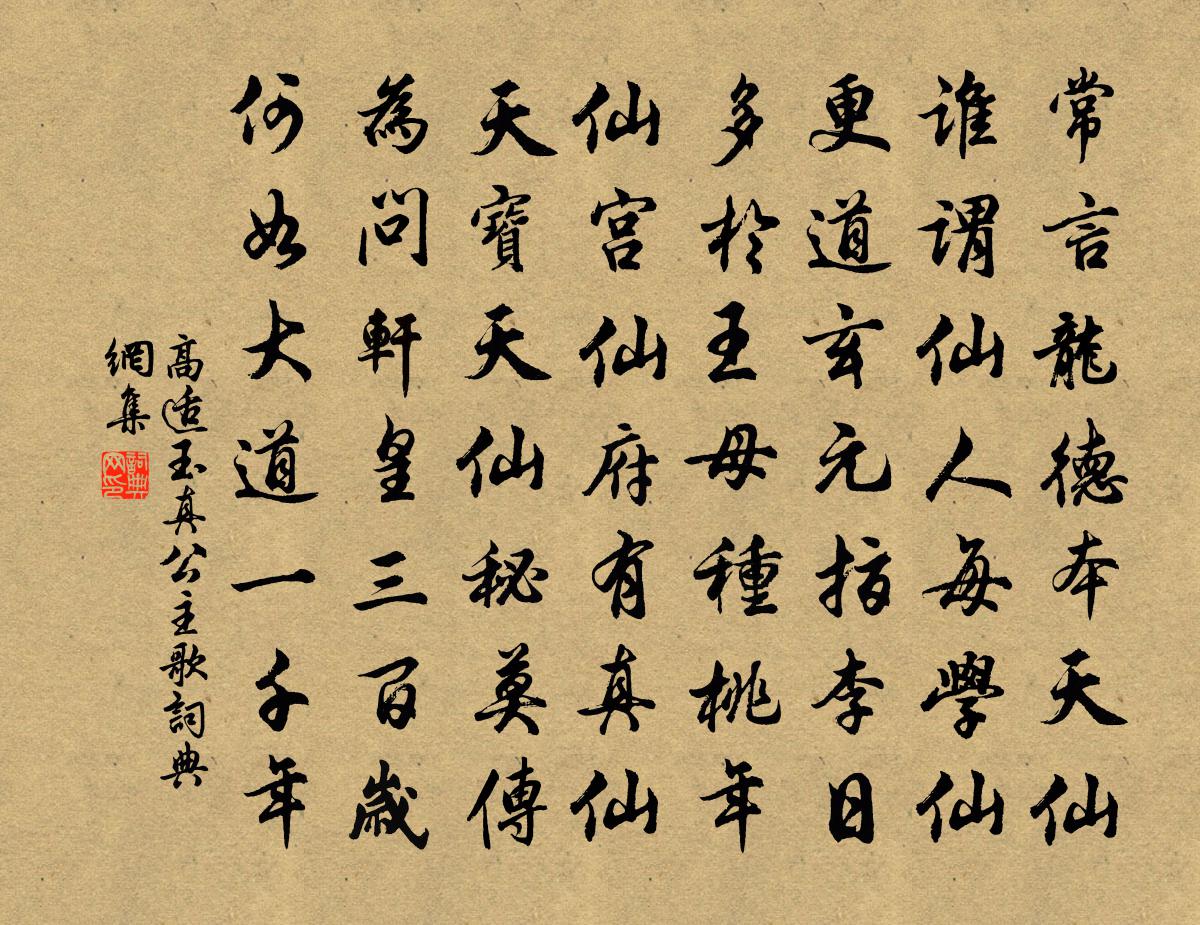 常言龍德本天仙
誰謂仙人每學仙
更道玄元指李日
多於王母種桃年
仙宮仙府有真仙
天寶天仙秘莫傳
為問軒皇三百歲
何如大道一千年
高适玉真公主歌詞典
網集
詞典網印